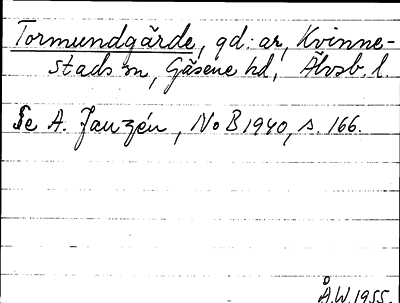 Tormundgärde, gd: ar, Kvinne-
stads sn, Gäsene hd, Älvsb. l.
Se A. Janzén, NoB 1940, s. 166.
Å.W. 1955.